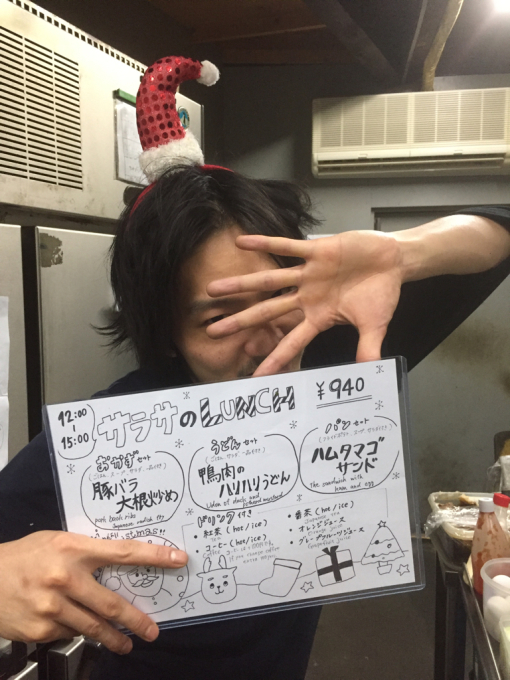 12:00
15:00
サラサのLUNCH
¥940
おかずセット
豚バラ
大根炒め
Japanese radish
うどんセット
鴨肉の
ハリハリうどん
Udon of duck and
パンセット
ハムタマゴ
サンド
The sandwich with
ham and egg
ドリンク付き
・紅茶 (hot/ice)
・コーヒー (hot/ice)
・番茶 (hot/ice)
・オレンジジュース
・グレープフルーツジュース